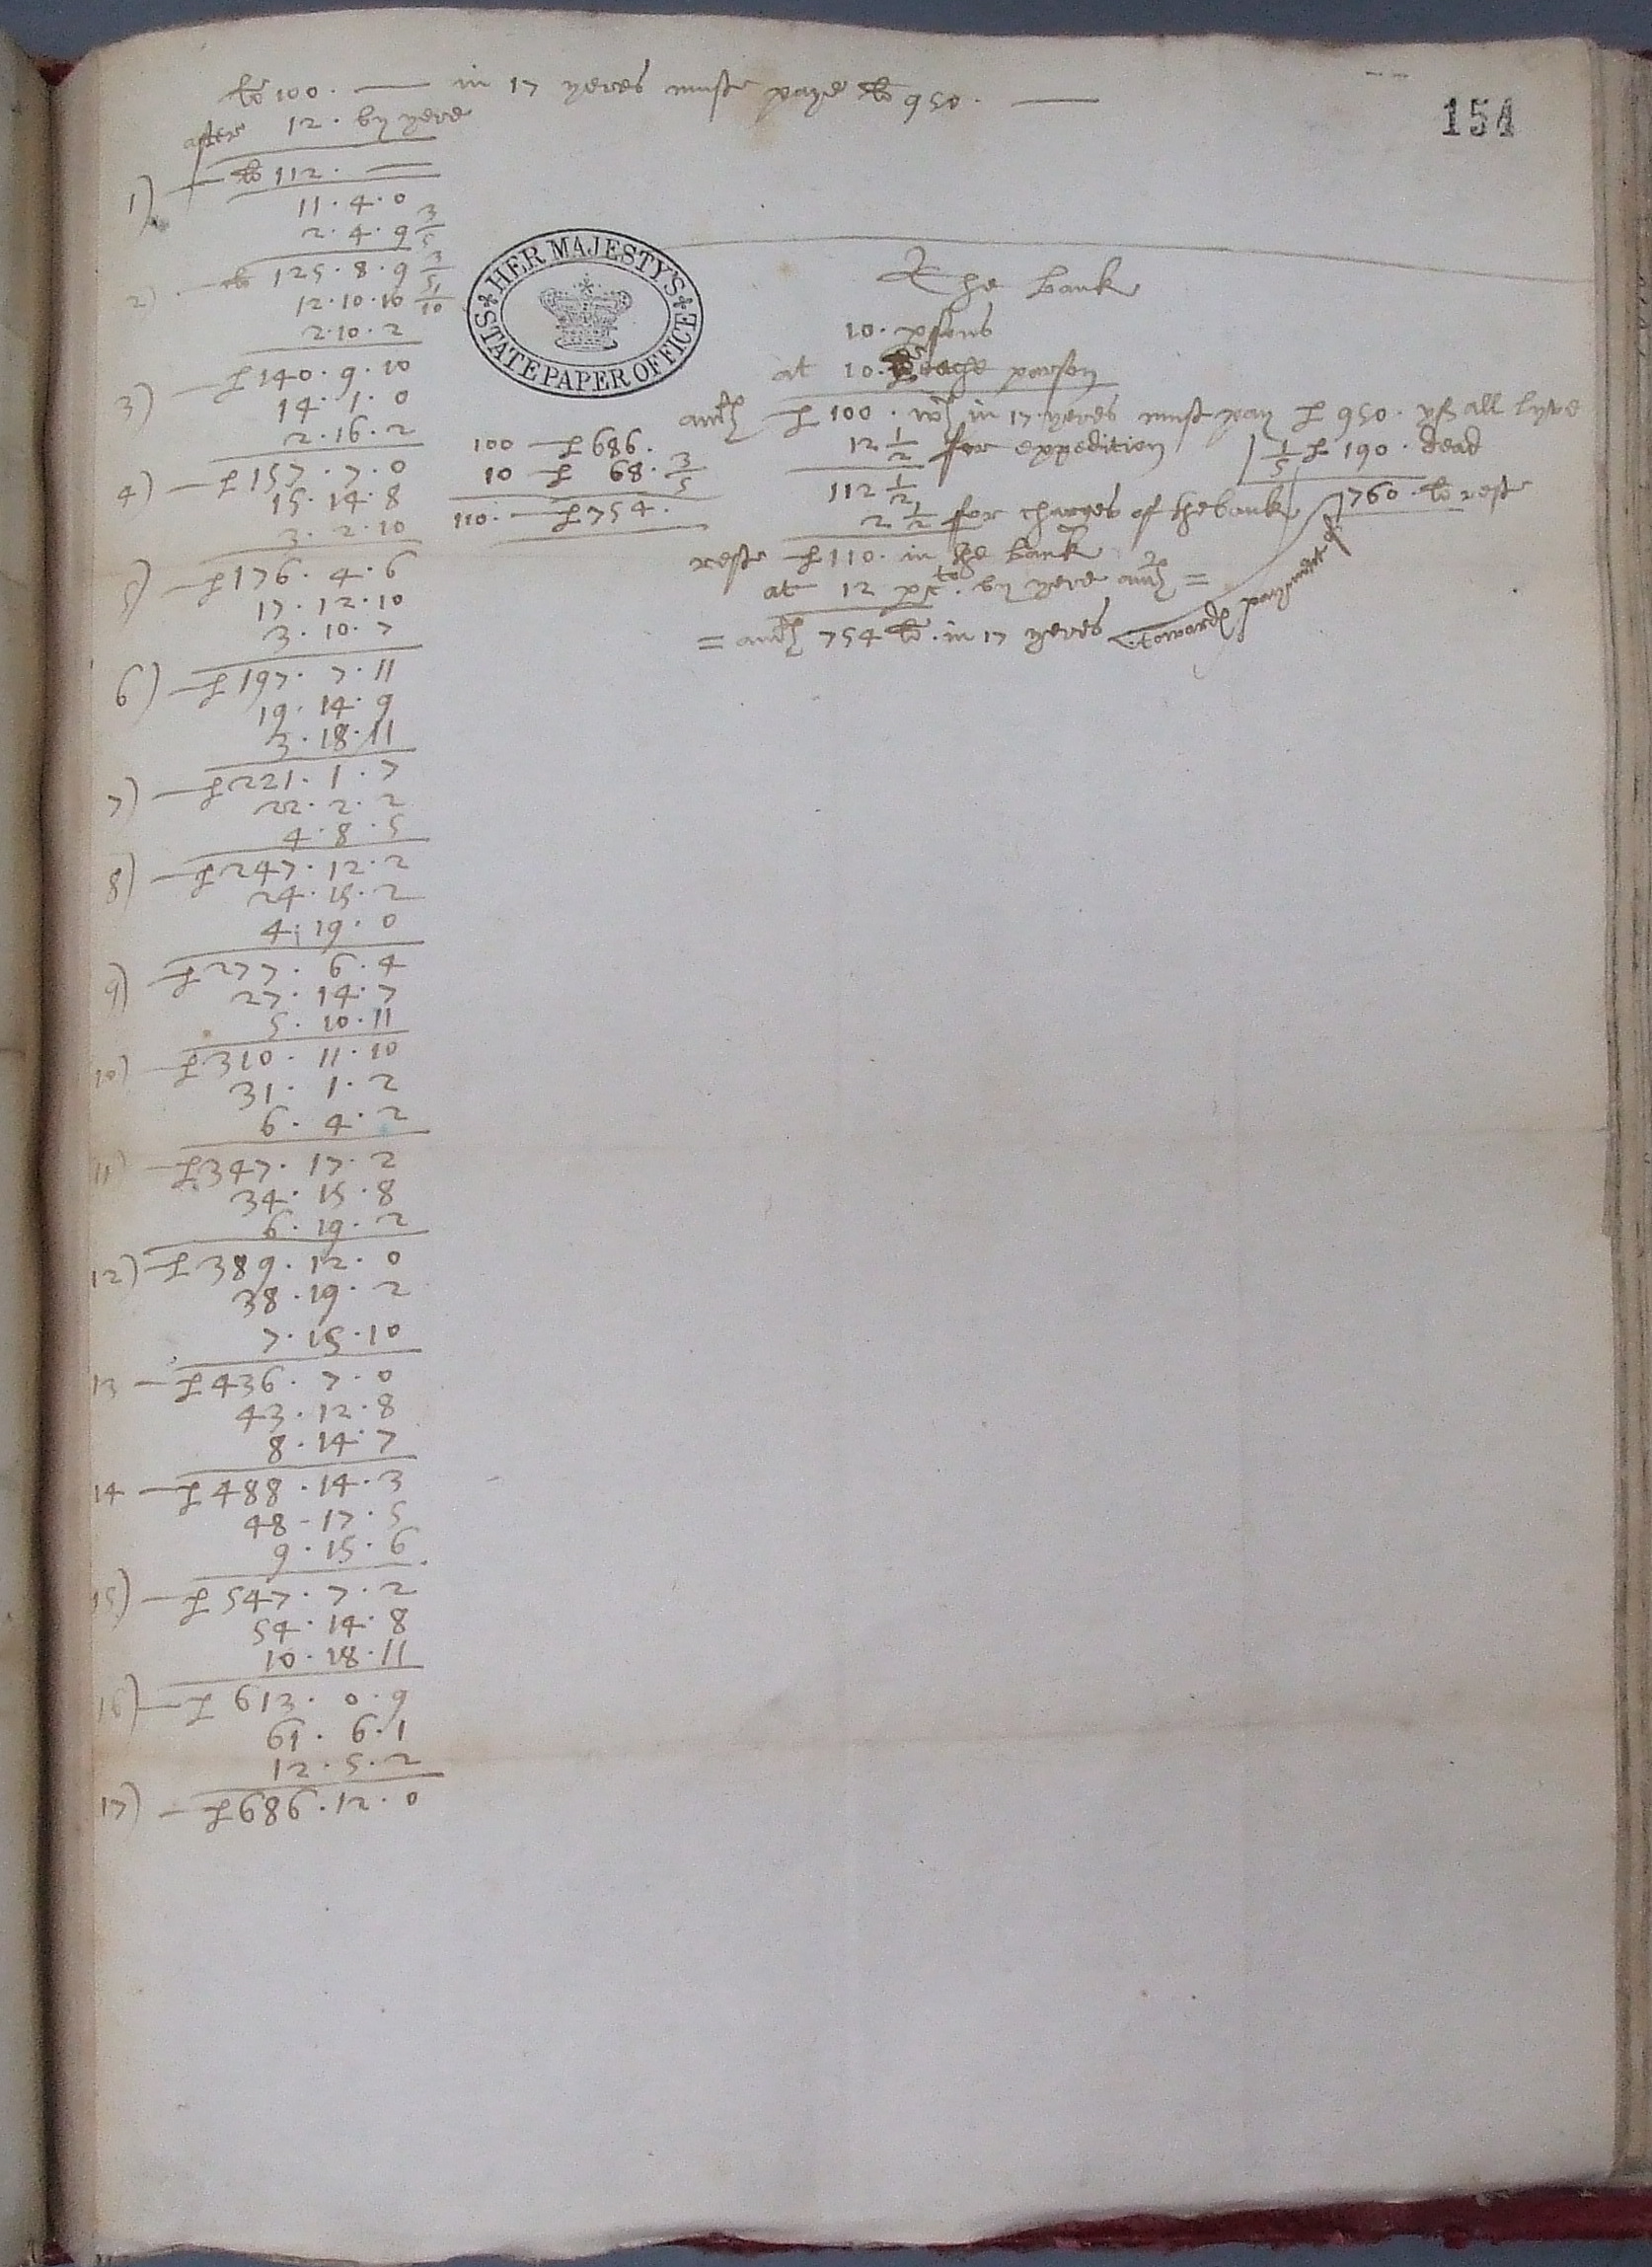 154
li 100. — in 17 yeres must paye li 950. —
after 12. by yere
1) — li 112. —
11. 4. 0
2. 4. 9 3/5
2) — li 125. 8. 9 3/5
12. 10. 10 1/10
2. 10. 2
3) — £ 140. 9. 10
14. 1. 0
2. 16. 2
4) — £ 157. 7. 0
15. 14. 8
3. 2. 10
5) — £ 176. 4. 6
17. 12. 10
3. 10. 7
6) — £ 197. 7. 11
19. 14. 9
3. 18. 11
7) — £ 221. 1. 7
22. 2. 2
4. 8. 5
8) — £ 247. 12. 2
24. 15. 2
4. 19. 0
9) — £ 277. 6. 4
27. 14. 7
5. 10. 11
10) — £ 310. 11. 10
31. 1. 2
6. 4. 2
11) — £ 347. 17. 2
34. 15. 8
6. 19. 2
12) — £ 389. 12. 0
38. 19. 2
7. 15. 10
13 — £ 436. 7. 0
43. 12. 8
8. 14. 7
14 — £ 488. 14. 3
48 - 17. 5
9. 15. 6
15) — £ 547. 7. 2
54. 14. 8
10. 18. 11
16) — £ 613. 0. 9
61. 6. 1
12. 5. 2
17) — £ 686. 12. 0
HER MAJESTY'S STATE PAPER OFFICE
100 — £ 686.
10 — £ 68. 3/5
110. — £ 754.
The bank
10. psons
at 10. eache parson
£ 100. wch in 17. yeres must pay £ 950. yf all lyve
12 1/2 for expedition
1/5 £ 190. dead
112 1/2
760. li rest
2 1/2 for charges of the bank
rest £ 110. in the bank
at 12 p cto. by yere =
= 754 li. in 17 yeres towards payment of